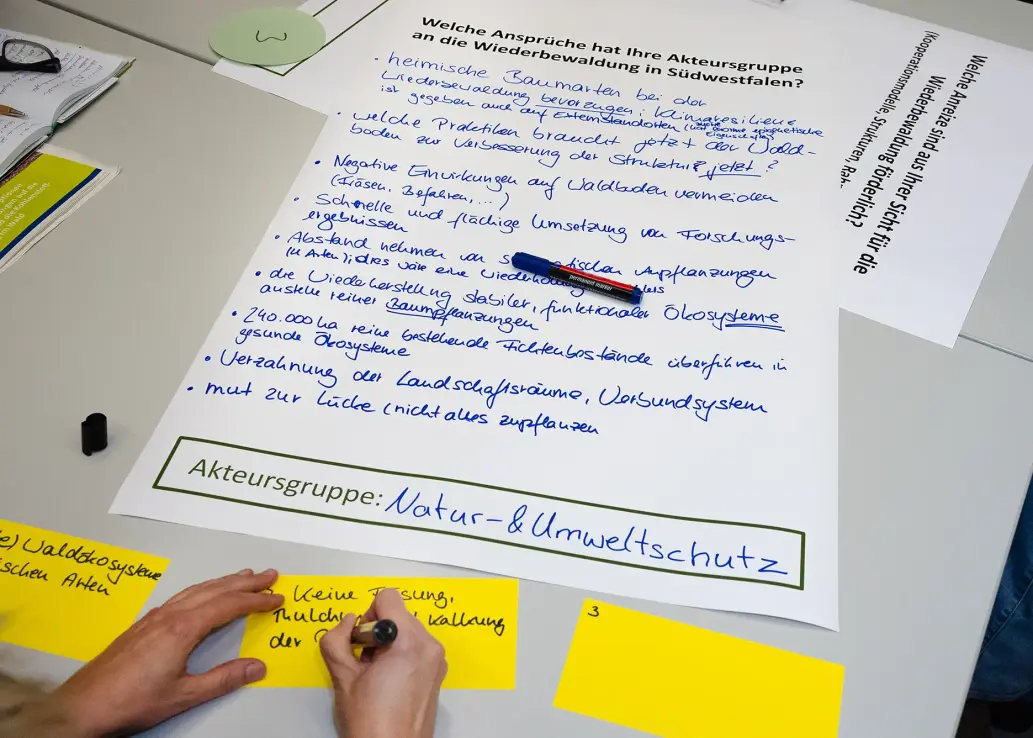 Welche Ansprüche hat Ihre Akteursgruppe
an die Wiederbewaldung in Südwestfalen?
• heimische Baumarten bei der
Wiederbewaldung bevorzugen; Klimaresilienz
ist gegeben auch auf Extremstandorten
• welche Praktiken braucht jetzt der Wald-
boden zur Verbesserung der Struktur? jetzt?
• Negative Einwirkungen auf Waldboden vermeiden
(Fräsen, Befahren, ...)
• Schnelle und flächige Umsetzung von Forschungs-
ergebnissen
• Abstand nehmen von Anpflanzungen
(u Arten); dies wäre eine
• die Wiederherstellung stabiler, funktionaler Ökosysteme
anstelle reiner Baumpflanzungen
• 240.000 ha reine bestehende Fichtenbestände überführen in
gesunde Ökosysteme
• Verzahnung der Landschaftsräume, Verbundsystem
• mut zur Lücke (nicht alles zupflanzen
Akteursgruppe: Natur-&Umweltschutz
Welche Anreize sind aus Ihrer Sicht für die
Wiederbewaldung förderlich?
(Kooperationsmodelle, Strukturen,
permanent marker
Waldökosysteme
Arten
Keine
Kalkung
der
3